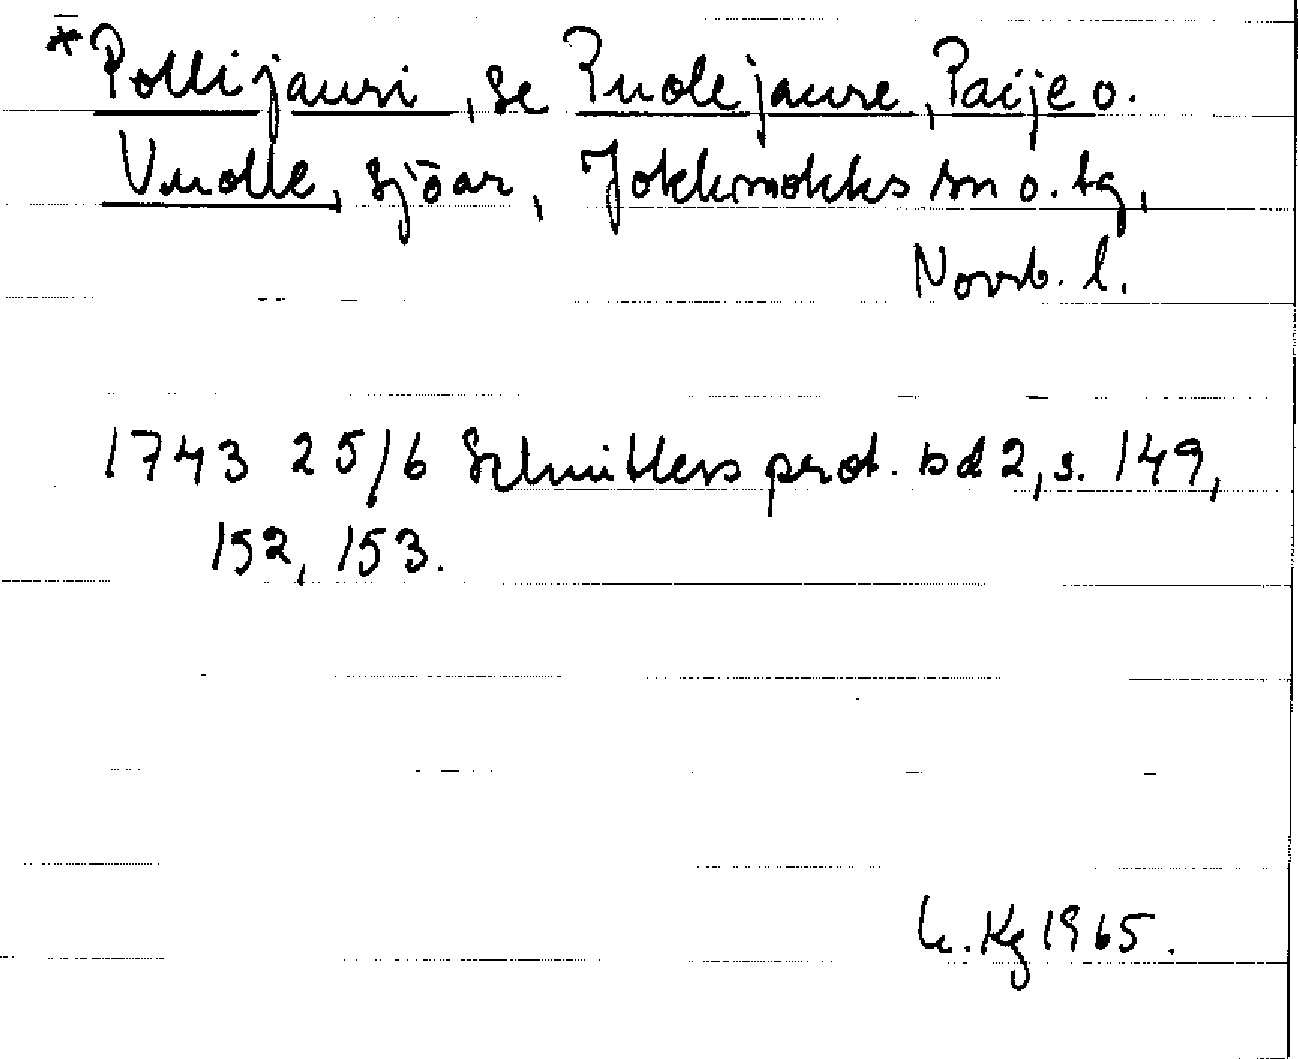 *Pollijauri, se Puolejaure, Paije o.
Vuolle, sjöar, Jokkmokks sn o. tg,
Norrb. l.
1743 25/6 Schnitlers prot. bd 2, s. 149,
152, 153.
Kg 1965.